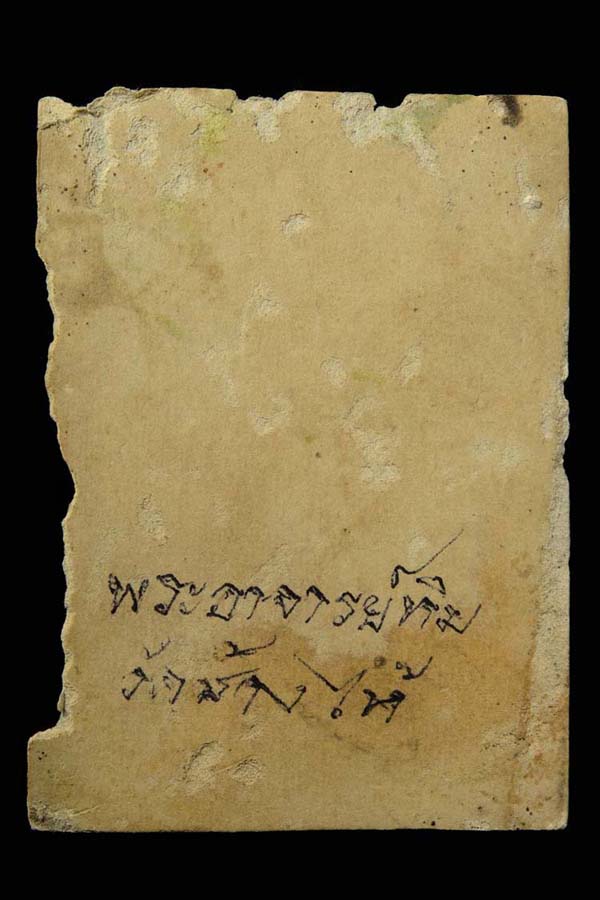 พระอาจารย์ทิม
วัดช้างให้